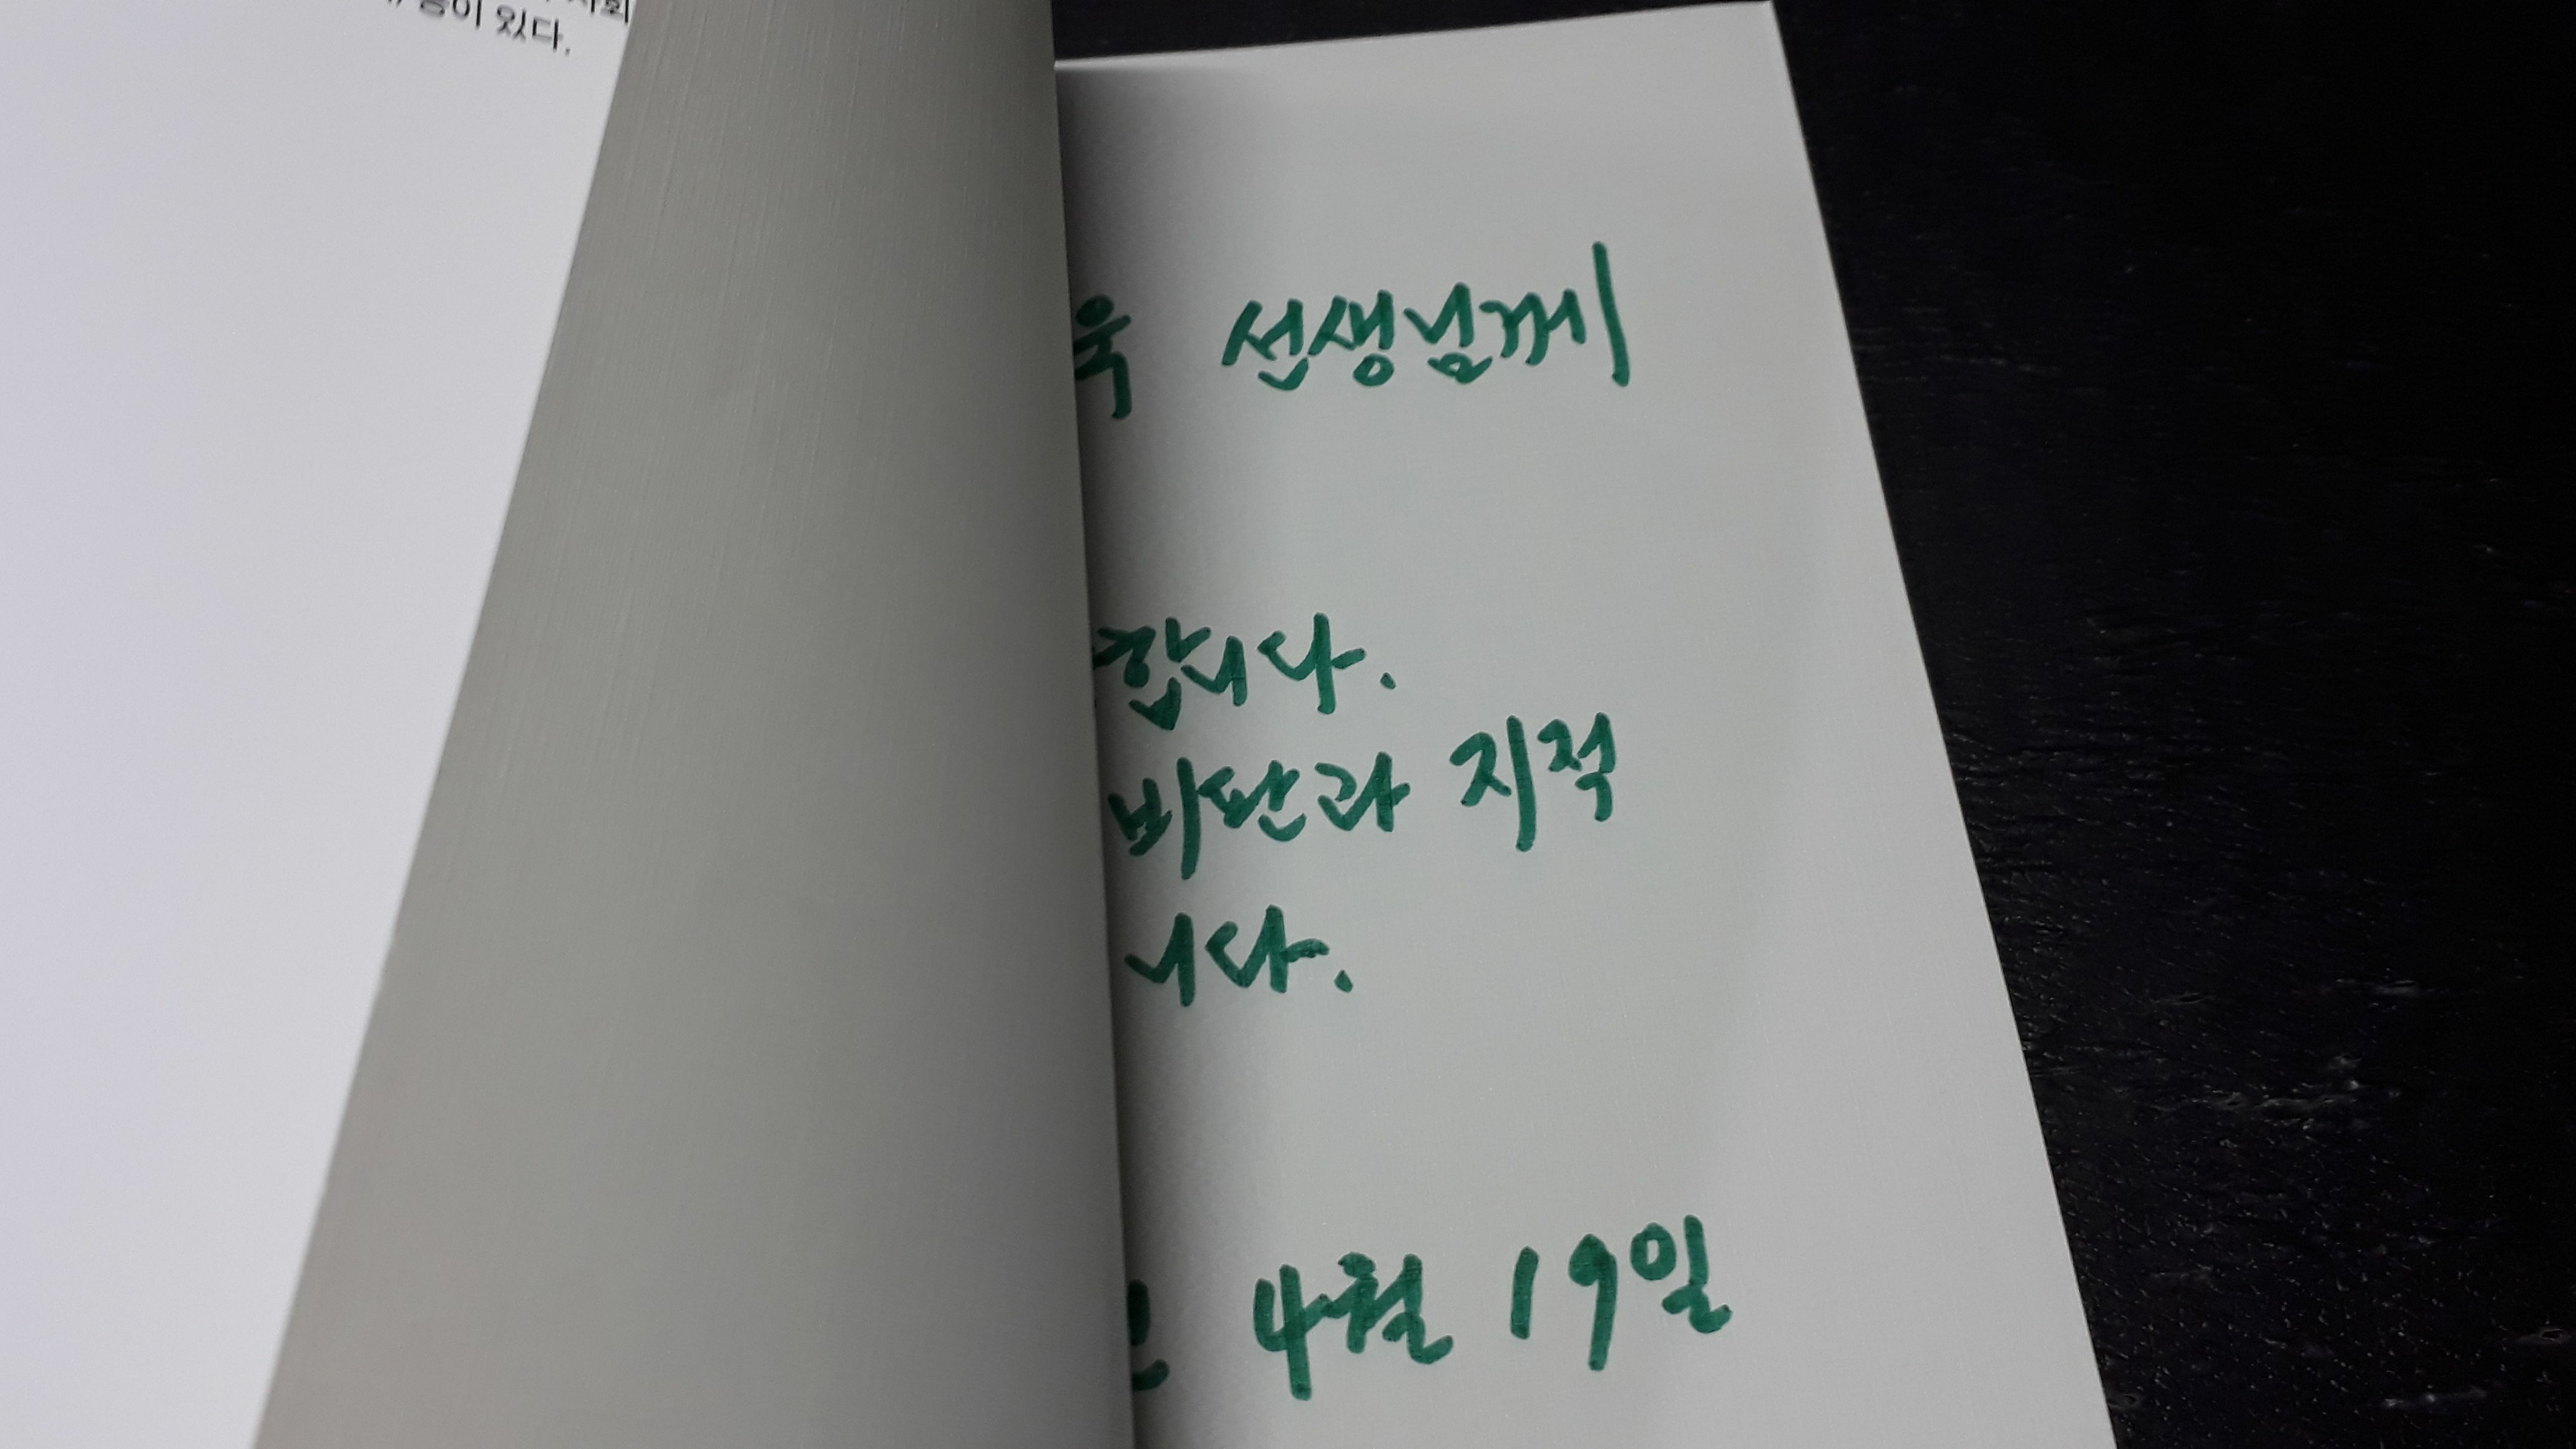 이 있다.
욱 선생님께
합니다.
비판과 지적
니다.
4월 19일